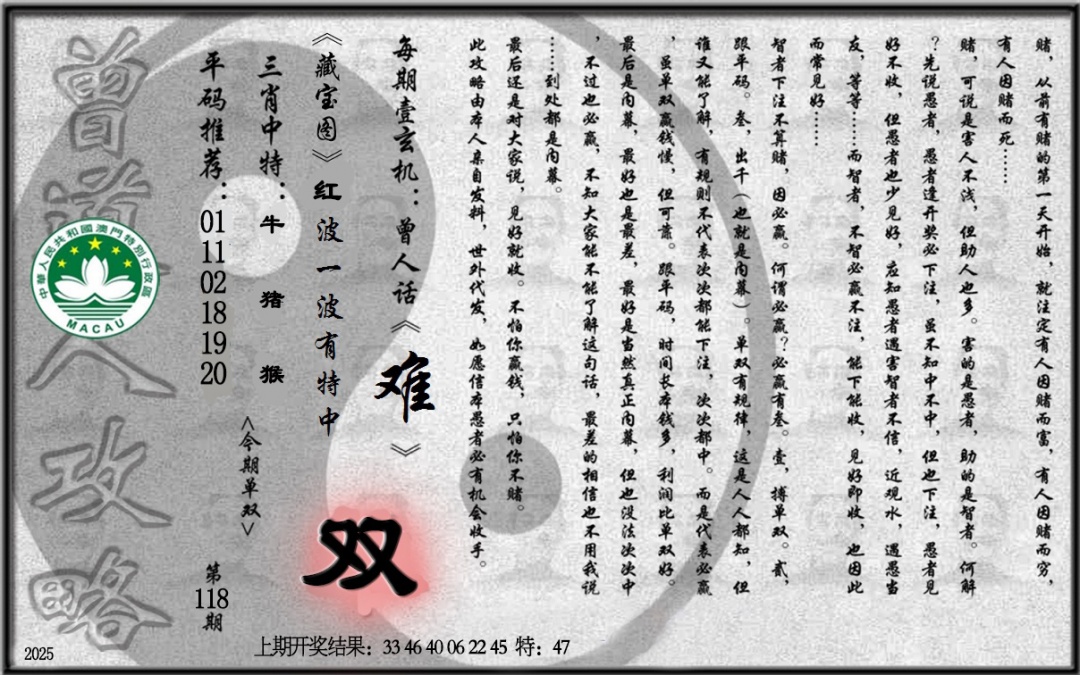 赌，从前有赌的第一天开始，就注定有人因赌而富，有人因赌而穷，
有人因赌而死……
赌，可说是害人不浅，但助人也多。害的是愚者，助的是智者。何解
？先说愚者，愚者逢开奖必下注，虽不知中不中，但也下注，愚者见
好不收，但愚者也少见好，应知愚者遇害智者不信，近观水，遇愚当
友，等等……而智者，不智必赢不注，能下能收，见好即收，也因此
而常见好……
智者下注不算赌，因必赢。何谓必赢？必赢有叁。壹，搏单双。贰，
跟平码。叁，出千（也就是内幕）。单双有规律，这是人人都知，但
谁又能了解，有规则不代表次次都能下注，次次都中。而是代表必赢
，虽单双赢钱慢，但可靠。跟平码，时间长本钱多，利润比单双好。
最后是内幕，最好也是最差，最好是当然真正内幕，但也没法次次中
，不过也必赢，不知大家能不能了解这句话，最差的相信也不用我说
……到处都是内幕。
最后还是对大家说，见好就收。不怕你赢钱，只怕你不赌。
此攻略由本人亲自发料，世外代发，如愿信本愚者必有机会收手。
每期壹玄机：曾人话《难》
《藏宝图》红波一波有特中
双
三肖中特：牛 猪 猴
<今期单双>
平码推荐：01 11 02 18 19 20
第118期
曾道人攻略
中華人民共和國澳門特別行政區
MACAU
2025
上期开奖结果：33 46 40 06 22 45 特：47